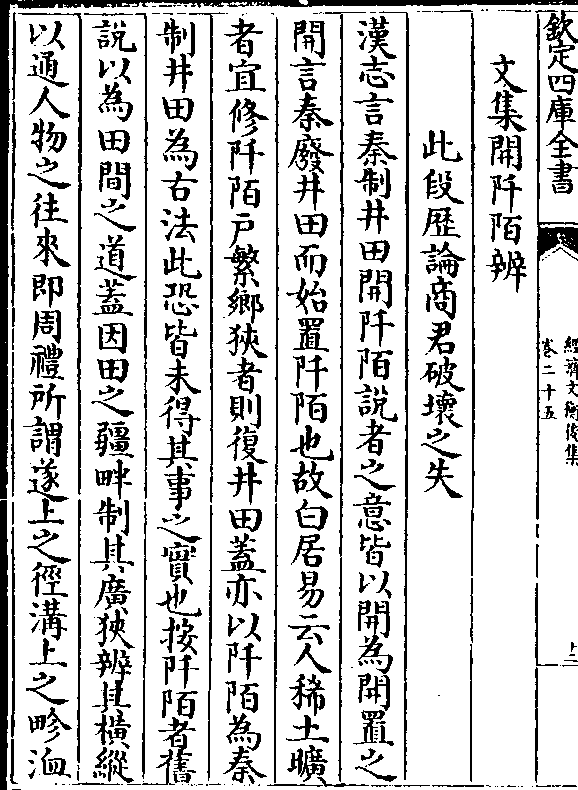 欽定四庫全書
經濟文衡後集
卷二十五
文集開阡陌辨
此段歷論商君破壞之失
漢志言秦制井田開阡陌說者之意皆以開為開置之
開言秦廢井田而始置阡陌也故白居易云人稀土曠
者宜修阡陌戶繁鄉狹者則復井田蓋亦以阡陌為秦
制井田為古法此恐皆未得其事之實也按阡陌者舊
說以為田間之道蓋因田之疆畔制其廣狹辨其橫縱
以通人物之往來即周禮所謂遂上之徑溝上之畛洫